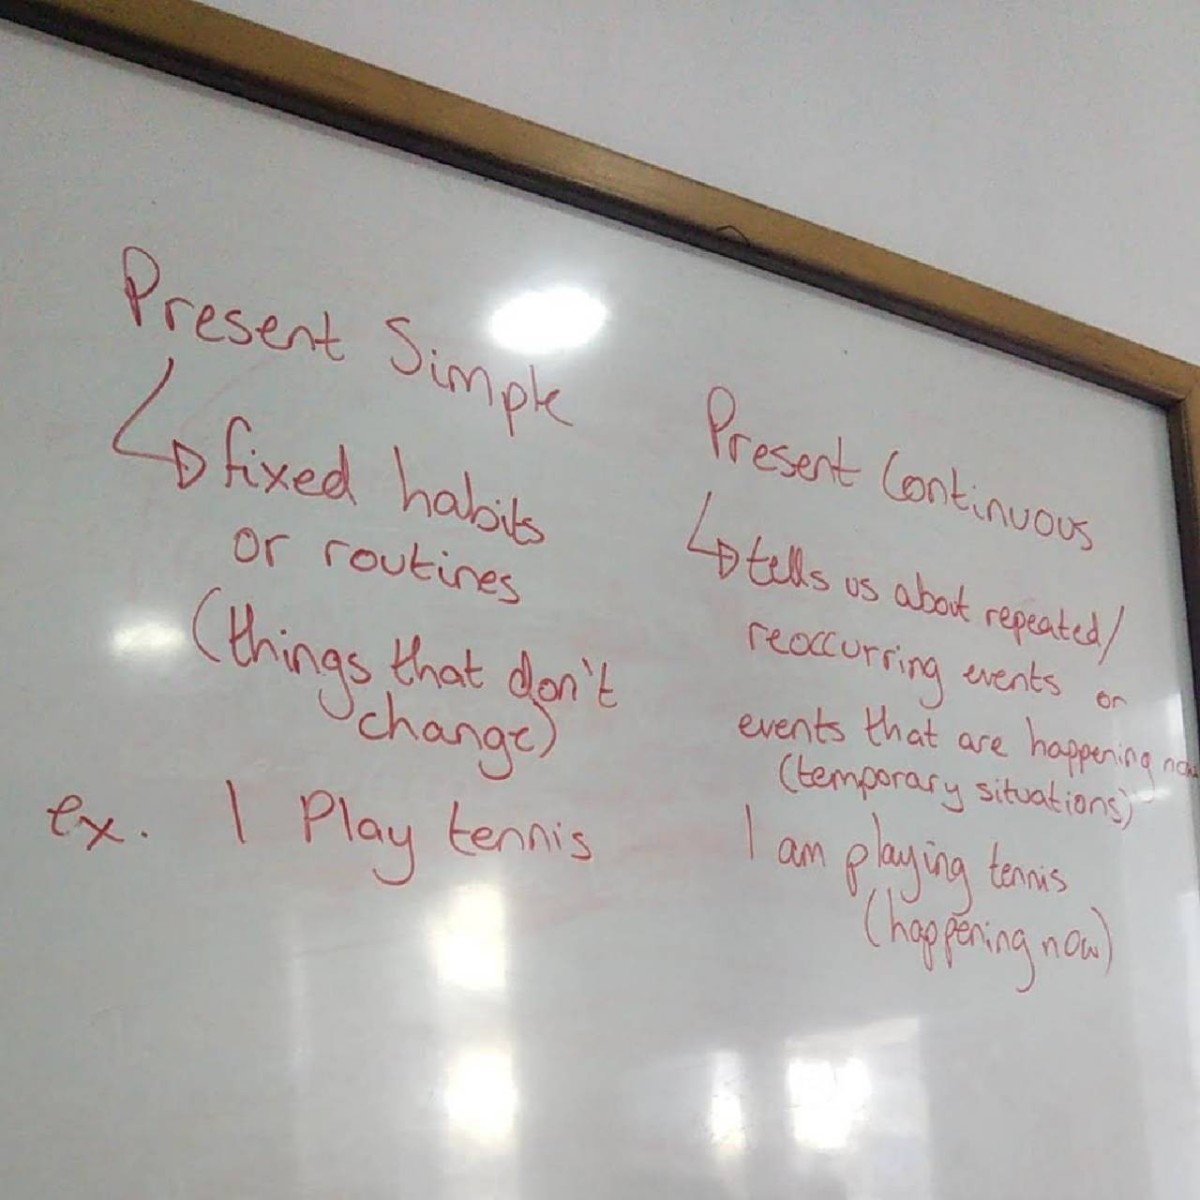 Present Simple
fixed habits
or routines
(things that don't
change)
ex. I Play tennis
Present Continuous
tells us about repeated/
reoccurring events or
events that are happening now
(temporary situations)
I am playing tennis
(happening now)